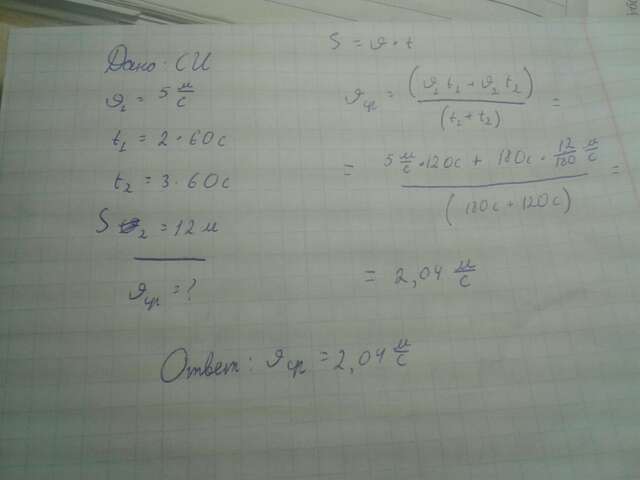 Дано: СИ
𝜗₁ = 5 м/с
t₁ = 2·60с
t₂ = 3·60с
S₂ = 12 м
𝜗ср = ?
S = 𝜗·t
𝜗ср = (𝜗₁t₁+𝜗₂t₂)/(t₁+t₂) =
= (5 м/с·120с + 180с·12/180 м/с)/(180с+120с) =
= 2,04 м/с
Ответ: 𝜗ср = 2,04 м/с